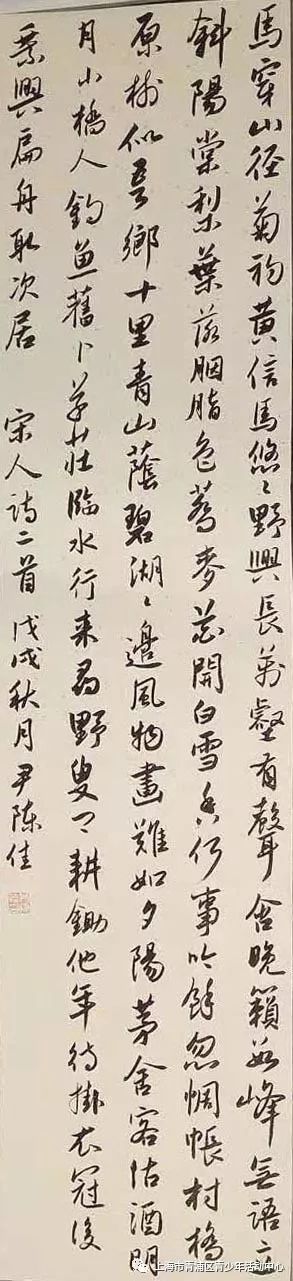 馬穿山徑菊初黃信馬悠〻野興長萬壑有聲含晚籟數峰無語立
斜陽棠梨葉落胭脂色蕎麥花開白雪香何事吟餘忽惆悵村橋
原樹似吾鄉十里青山蔭碧湖〻邊風物畫難如夕陽茅舍客沽酒明
月小橋人釣魚舊卜草莊臨水行來尋野叟問耕鋤他年待掛衣冠後
乘興扁舟取次居 宋人詩二首 戊戌秋月尹陳佳
上海市青浦区青少年活动中心